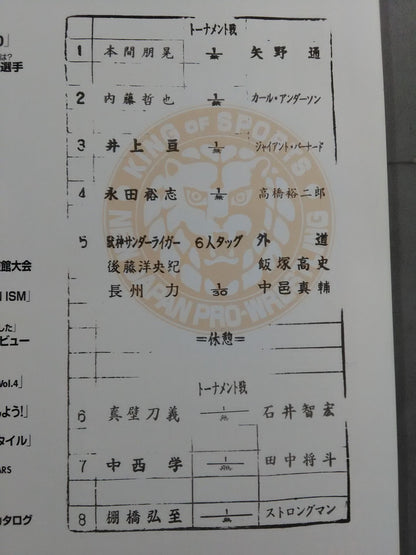 0」
は?
選手
館大会
ISM」
した」
ビュー
Vol.4」
よう!」
タイル」
ARS
カタログ
トーナメント戦
1 本間朋晃 1/無 矢野 通
2 内藤哲也 1/無 カール・アンダーソン
3 井上 亘 1/無 ジャイアント・バーナード
4 永田裕志 1/無 高橋裕二郎
5 獣神サンダーライガー 6人タッグ 外道
後藤洋央紀 飯塚高史
長州 力 1/30 中邑真輔
=休憩=
トーナメント戦
6 真壁刀義 1/無 石井智宏
7 中西 学 1/無 田中将斗
8 棚橋弘至 1/無 ストロングマン
KING OF SPORTS
JAPAN PRO-WRESTLING